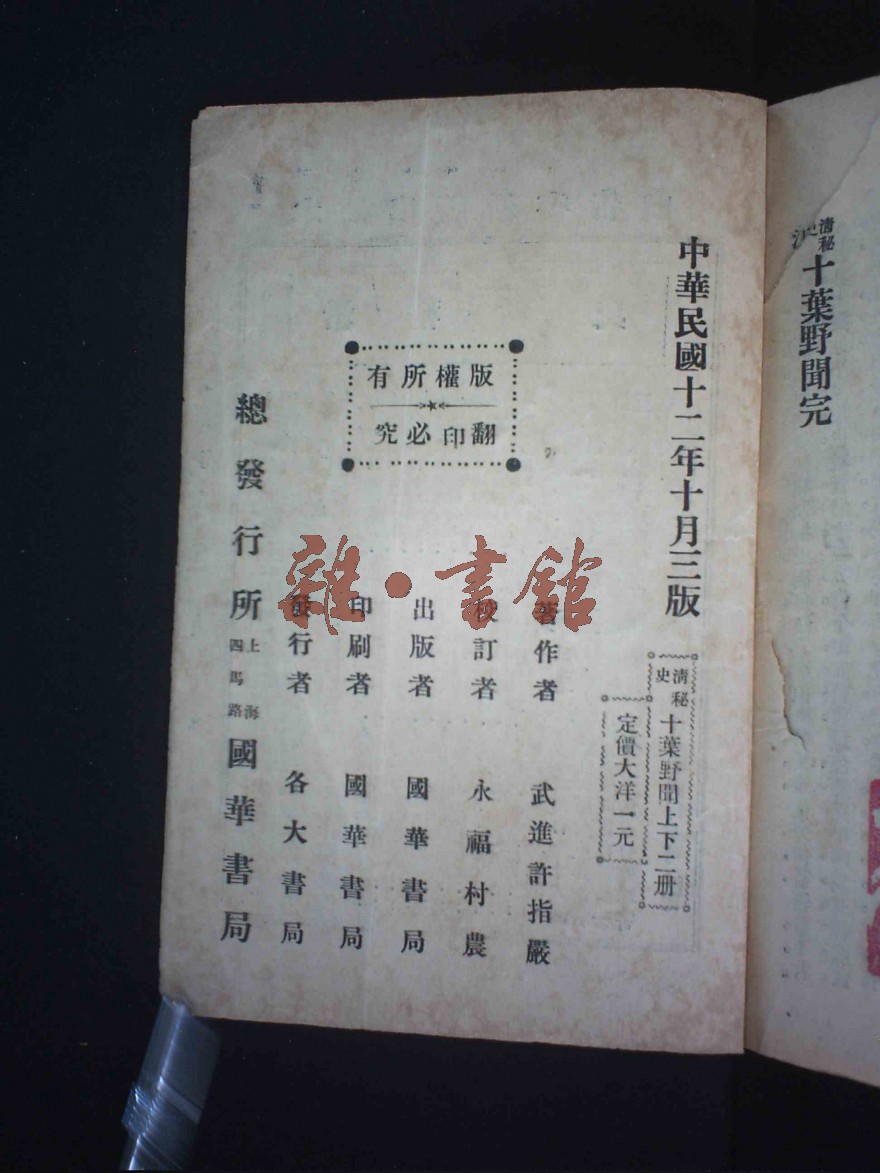 清秘史
十葉野聞完
中華民國十二年十月三版
清秘史
十葉野聞上下二册
定價大洋一元
版權所有
翻印必究
著作者 武進許指嚴
校訂者 永福村農
出版者 國華書局
印刷者 國華書局
發行者 各大書局
總發行所 上海四馬路 國華書局
雜·書館